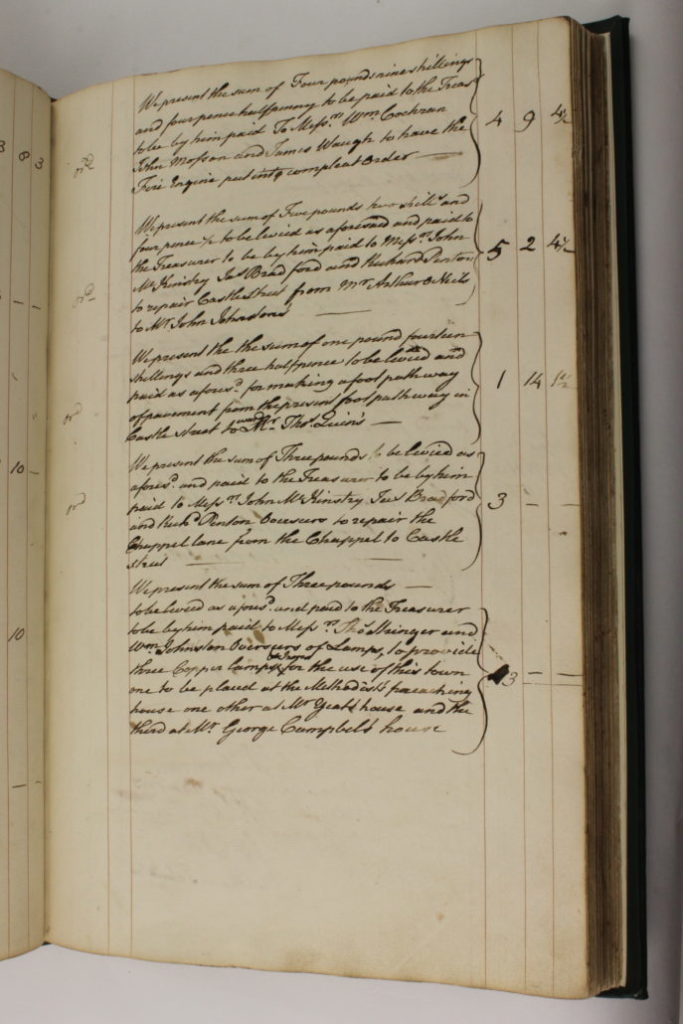 We present the sum of Four pounds nine shillings
and four pence halfpenny to be paid to the Treas
to be by him paid To Messrs. Wm Cochran
John Mosson and James Waugh to have the
Fire Engine put into compleat Order
4 9 4½
We present the sum of Five pounds two shills and
four pence ½ to be levied as aforesaid and paid to
the Treasurer to be by him paid to Messrs. John
McKinstry Jas Bradford and Richard Penton
to repair Castle Street from Mr Arthur ONeils
to Mr. John Johnstons
5 2 4½
We present the the sum of one pound fourteen
shillings and three halfpence to be levied and
paid as aforesd. for making a foot path way
of pavement from the present foot path way in
Castle street towards Mr. Thos. Quin's
1 14 1½
We present the sum of Three pounds to be levied as
aforesd. and paid to the Treasurer to be by him
paid to Messrs. John McKinstry Jas Bradford
and Richd. Penton Overseers to repair the
Chappel lane from the Chappel to Castle
street
3 - -
We present the sum of Three pounds
to be levied as aforesd. and paid to the Treasurer
to be by him paid to Messrs. Thos. Stringer and
Wm. Johnston Overseers of Lamps, to provide
three Copper lamps for the use of this town
one to be placed at the Methodist preaching
house one other at Mr Yeats house and the
third at Mr. George Campbels house
3 - -
3 8 3
10
10